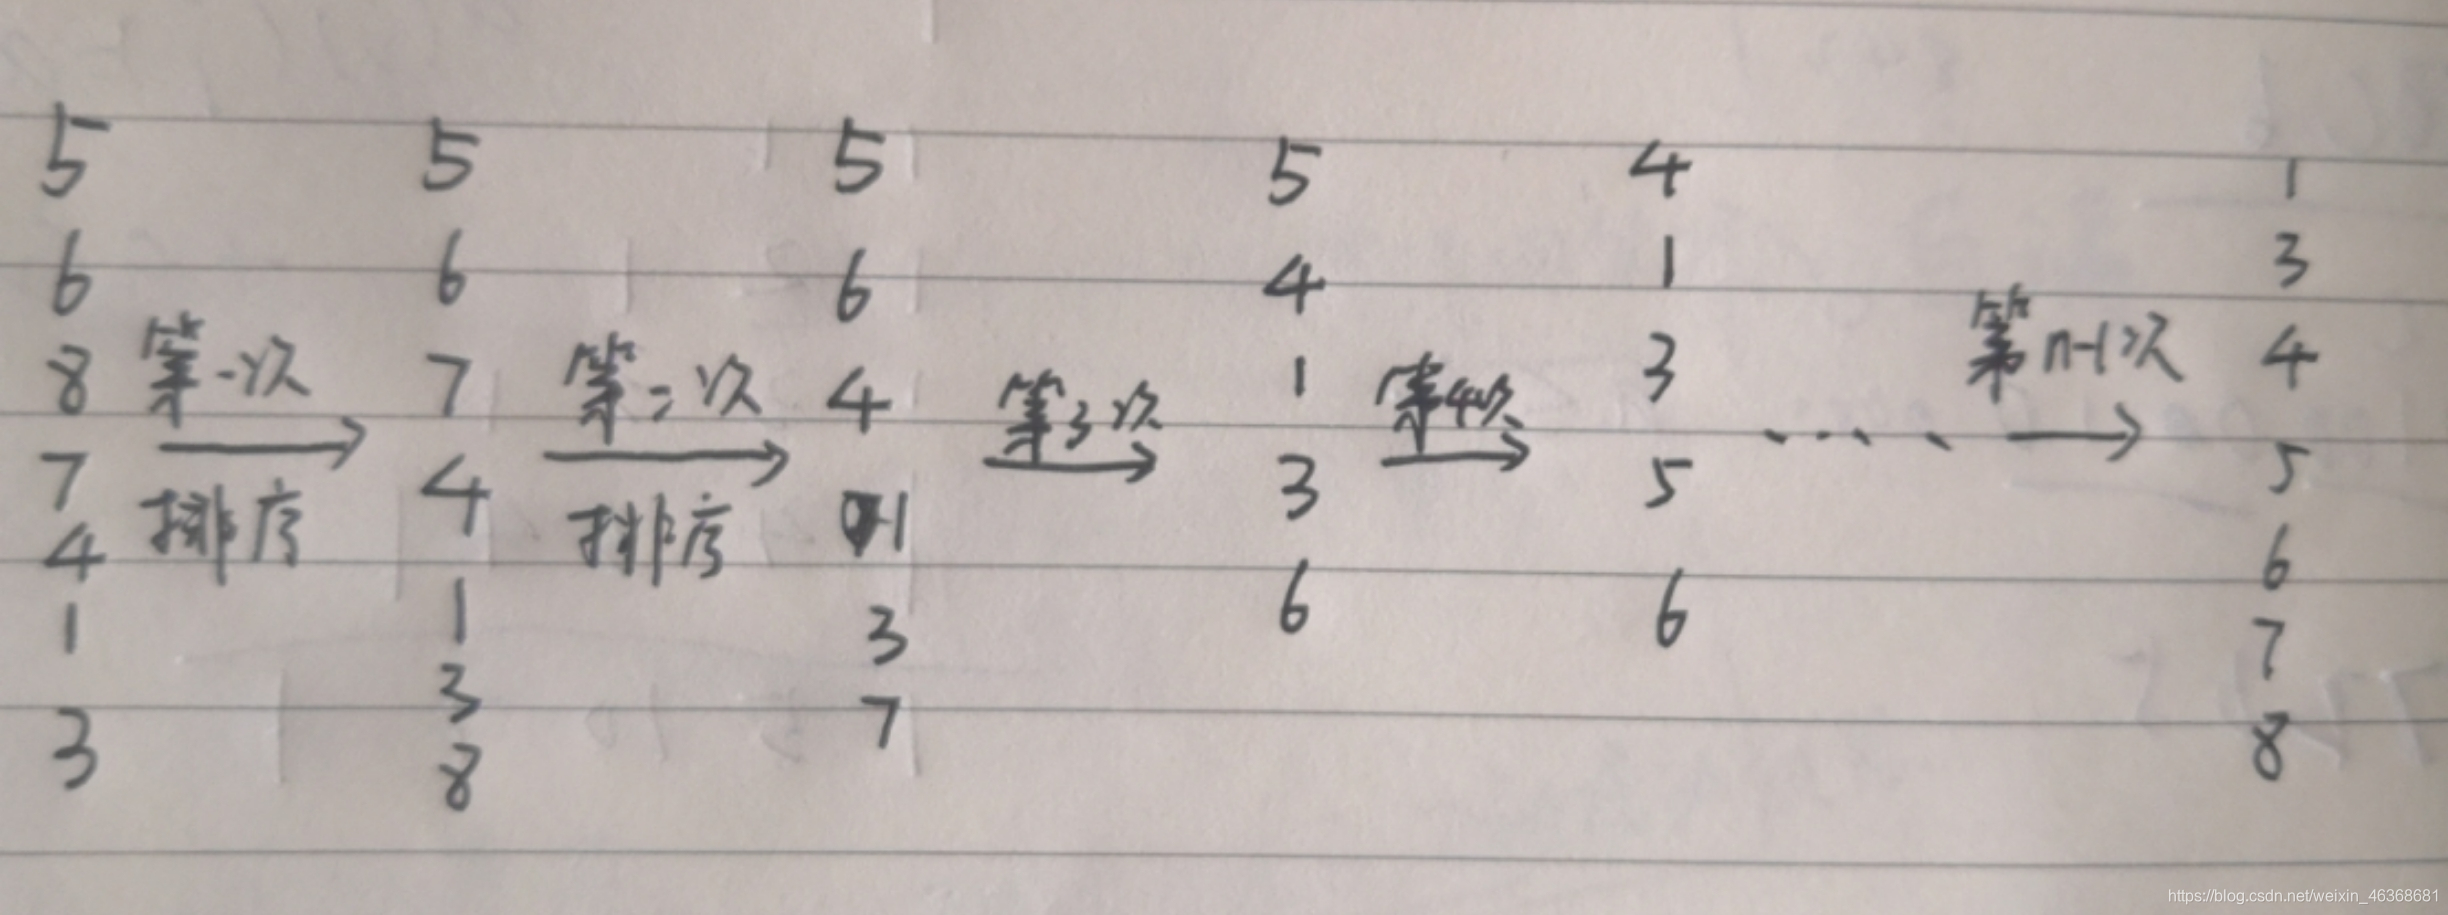 5
6
8
7
4
1
3
第一次
排序
5
6
7
4
1
3
8
第二次
排序
5
6
4
1
3
7
第3次
5
4
1
3
6
第4次
4
1
3
5
6
....
第n-1次
1
3
4
5
6
7
8
https://blog.csdn.net/weixin_46368681